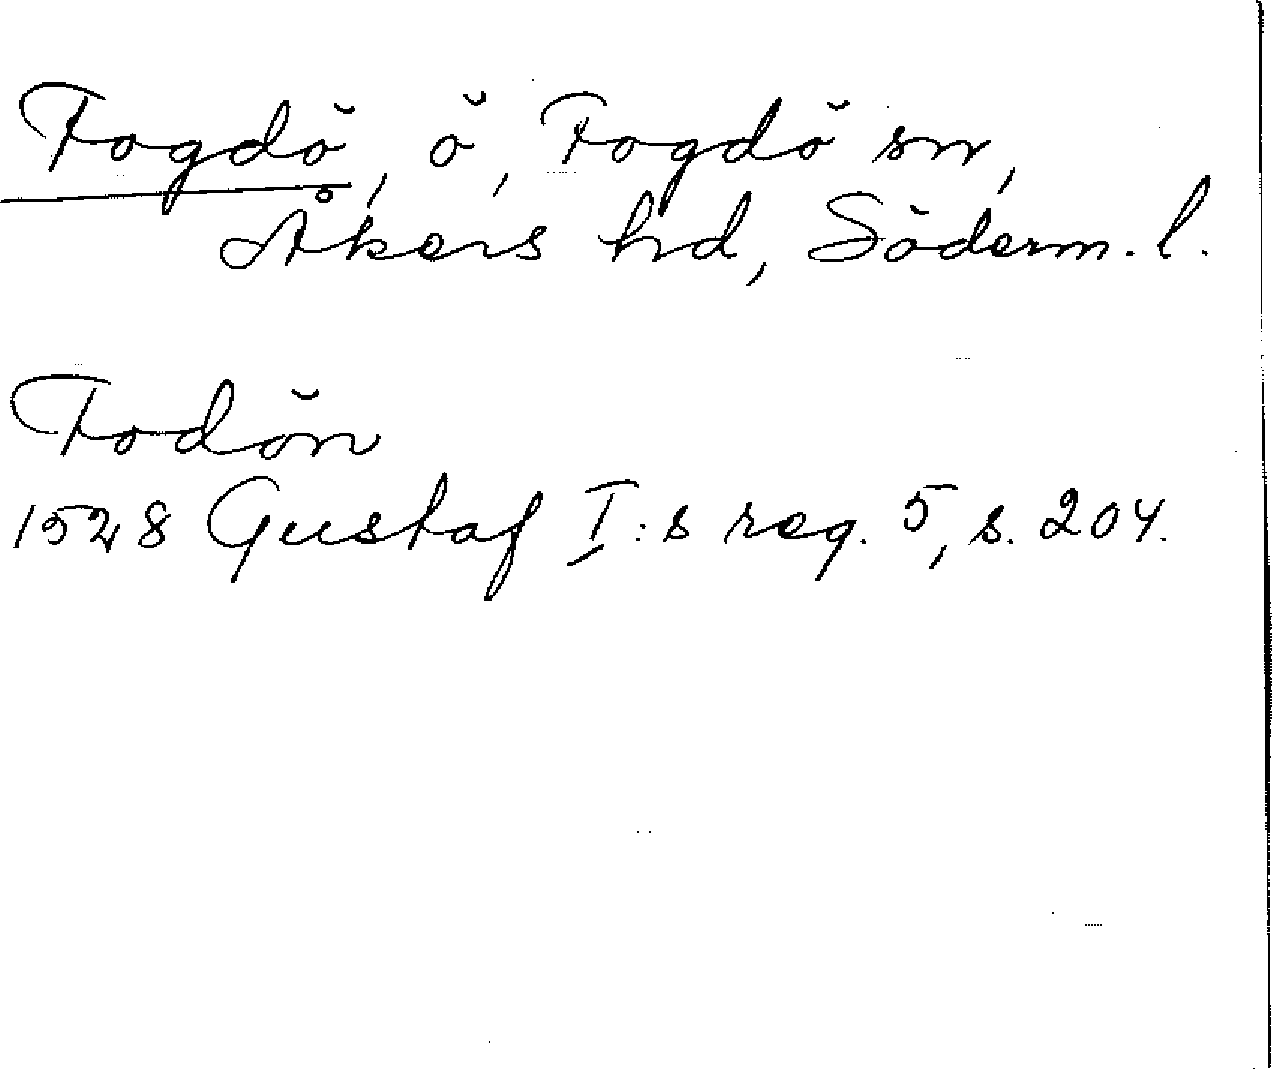 Fogdö, ö, Fogdö sn,
Åkers hd, Söderm. l.
Fodön
1528 Gustaf I:s reg. 5, s. 204.